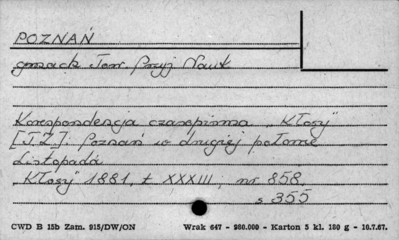 POZNAŃ
gmach Tow. Przyj Nauk
Korespondencja czasopisma „Kłosy"
[J.Z.]: Poznań w drugiej połowie
listopada
„Kłosy" 1881, t. XXXIII, nr 858
s 355
CWD B 15b Zam. 915/DW/ON Wrak 647 - 980.000 - Karton 5 kl. 180 g - 10.7.67.